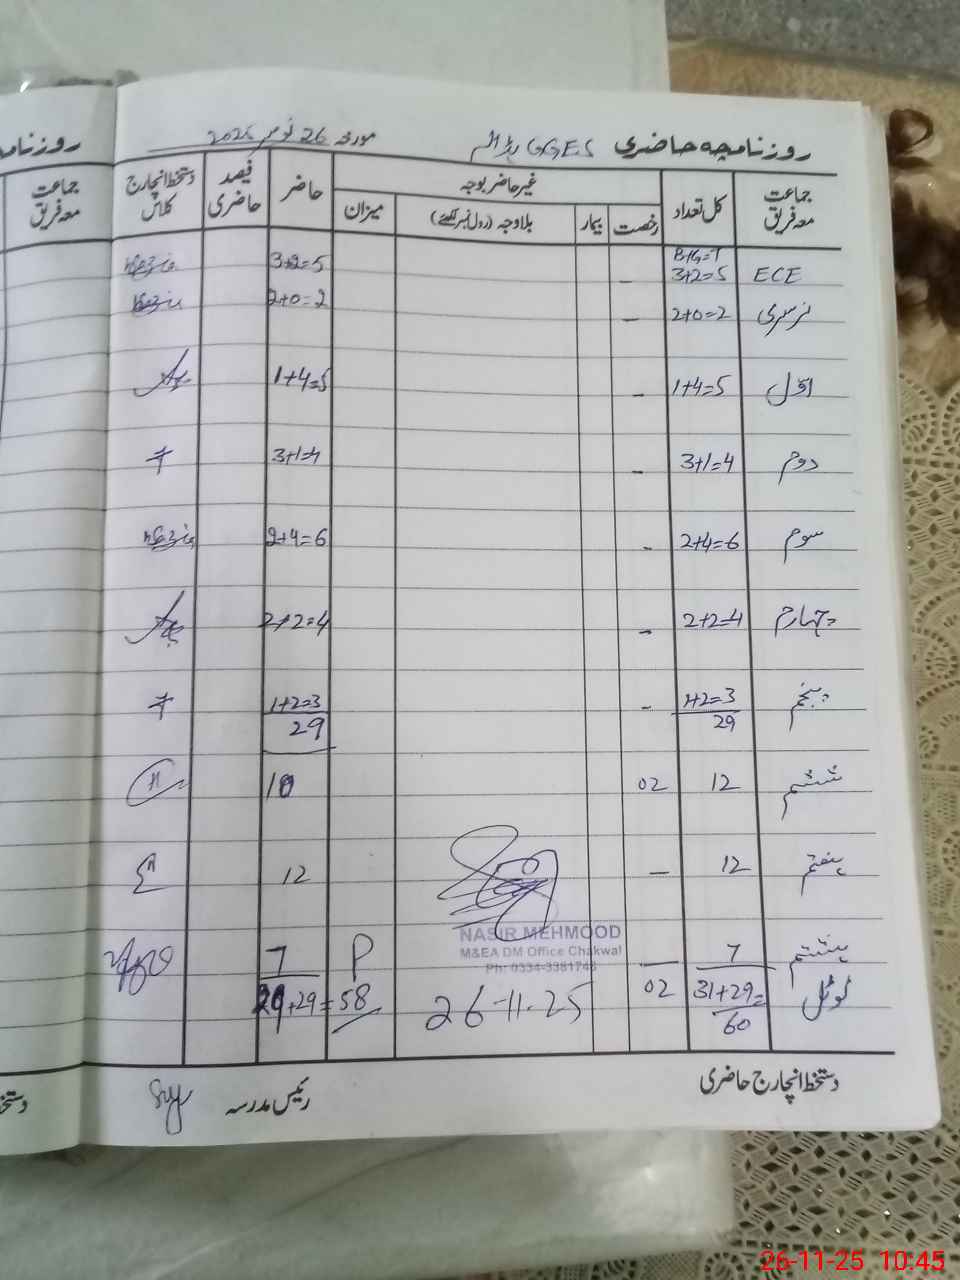 روزنامچہ حاضری GGES مورخہ 26 نومبر 2025
جماعت معہ فریق کل تعداد غیر حاضر بوجہ حاضر فیصد حاضری دستخط انچارج کلاس
رخصت بیمار بلاوجہ (رول نمبر لکھئے) میزان
B+G=T
ECE 3+2=5 - 3+2=5
نرسری 2+0=2 - 2+0=2
اوّل 1+4=5 - 1+4=5
دوم 3+1=4 - 3+1=4
سوم 2+4=6 - 2+4=6
چہارم 2+2=4 - 2+2=4
پنجم 1+2=3 - 1+2=3
29 29
ششم 12 02 10
ہفتم 12 - 12
ہشتم 7 - P 7
NASIR MEHMOOD
M&EA DM Office Chakwal
Ph: 0334-3381748
ٹوٹل 31+29= 02 26-11-25 29+29=58
60
دستخط انچارج حاضری رئیس مدرسہ
روزنامچہ
جماعت معہ فریق
26-11-25 10:45